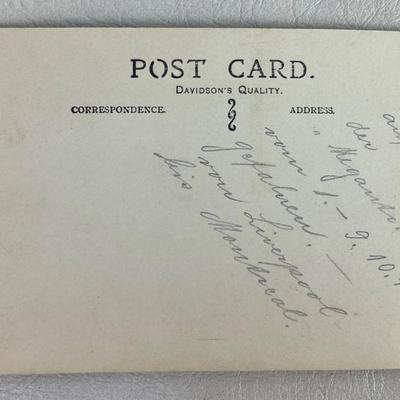 POST CARD.
DAVIDSON'S QUALITY.
CORRESPONDENCE.
ADDRESS.
auf
der
„Megantic.
vom 1. - 9. 10.
gefahren. —
von Liverpool
bis Montreal.